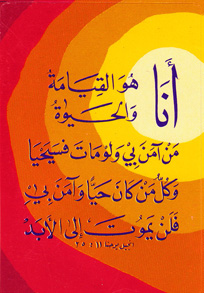 أَنَا
هُوَ القِيَامَةُ
وَالحَيَوٰةُ
مَنْ آمَنَ بِي وَلَوْمَاتَ فَسَيَحْيَا
وَكُلُّ مَنْ كَانَ حَيًّا وَآمَنَ بِي
فَلَنْ يَمُوتَ إِلَى الأَبَدِ